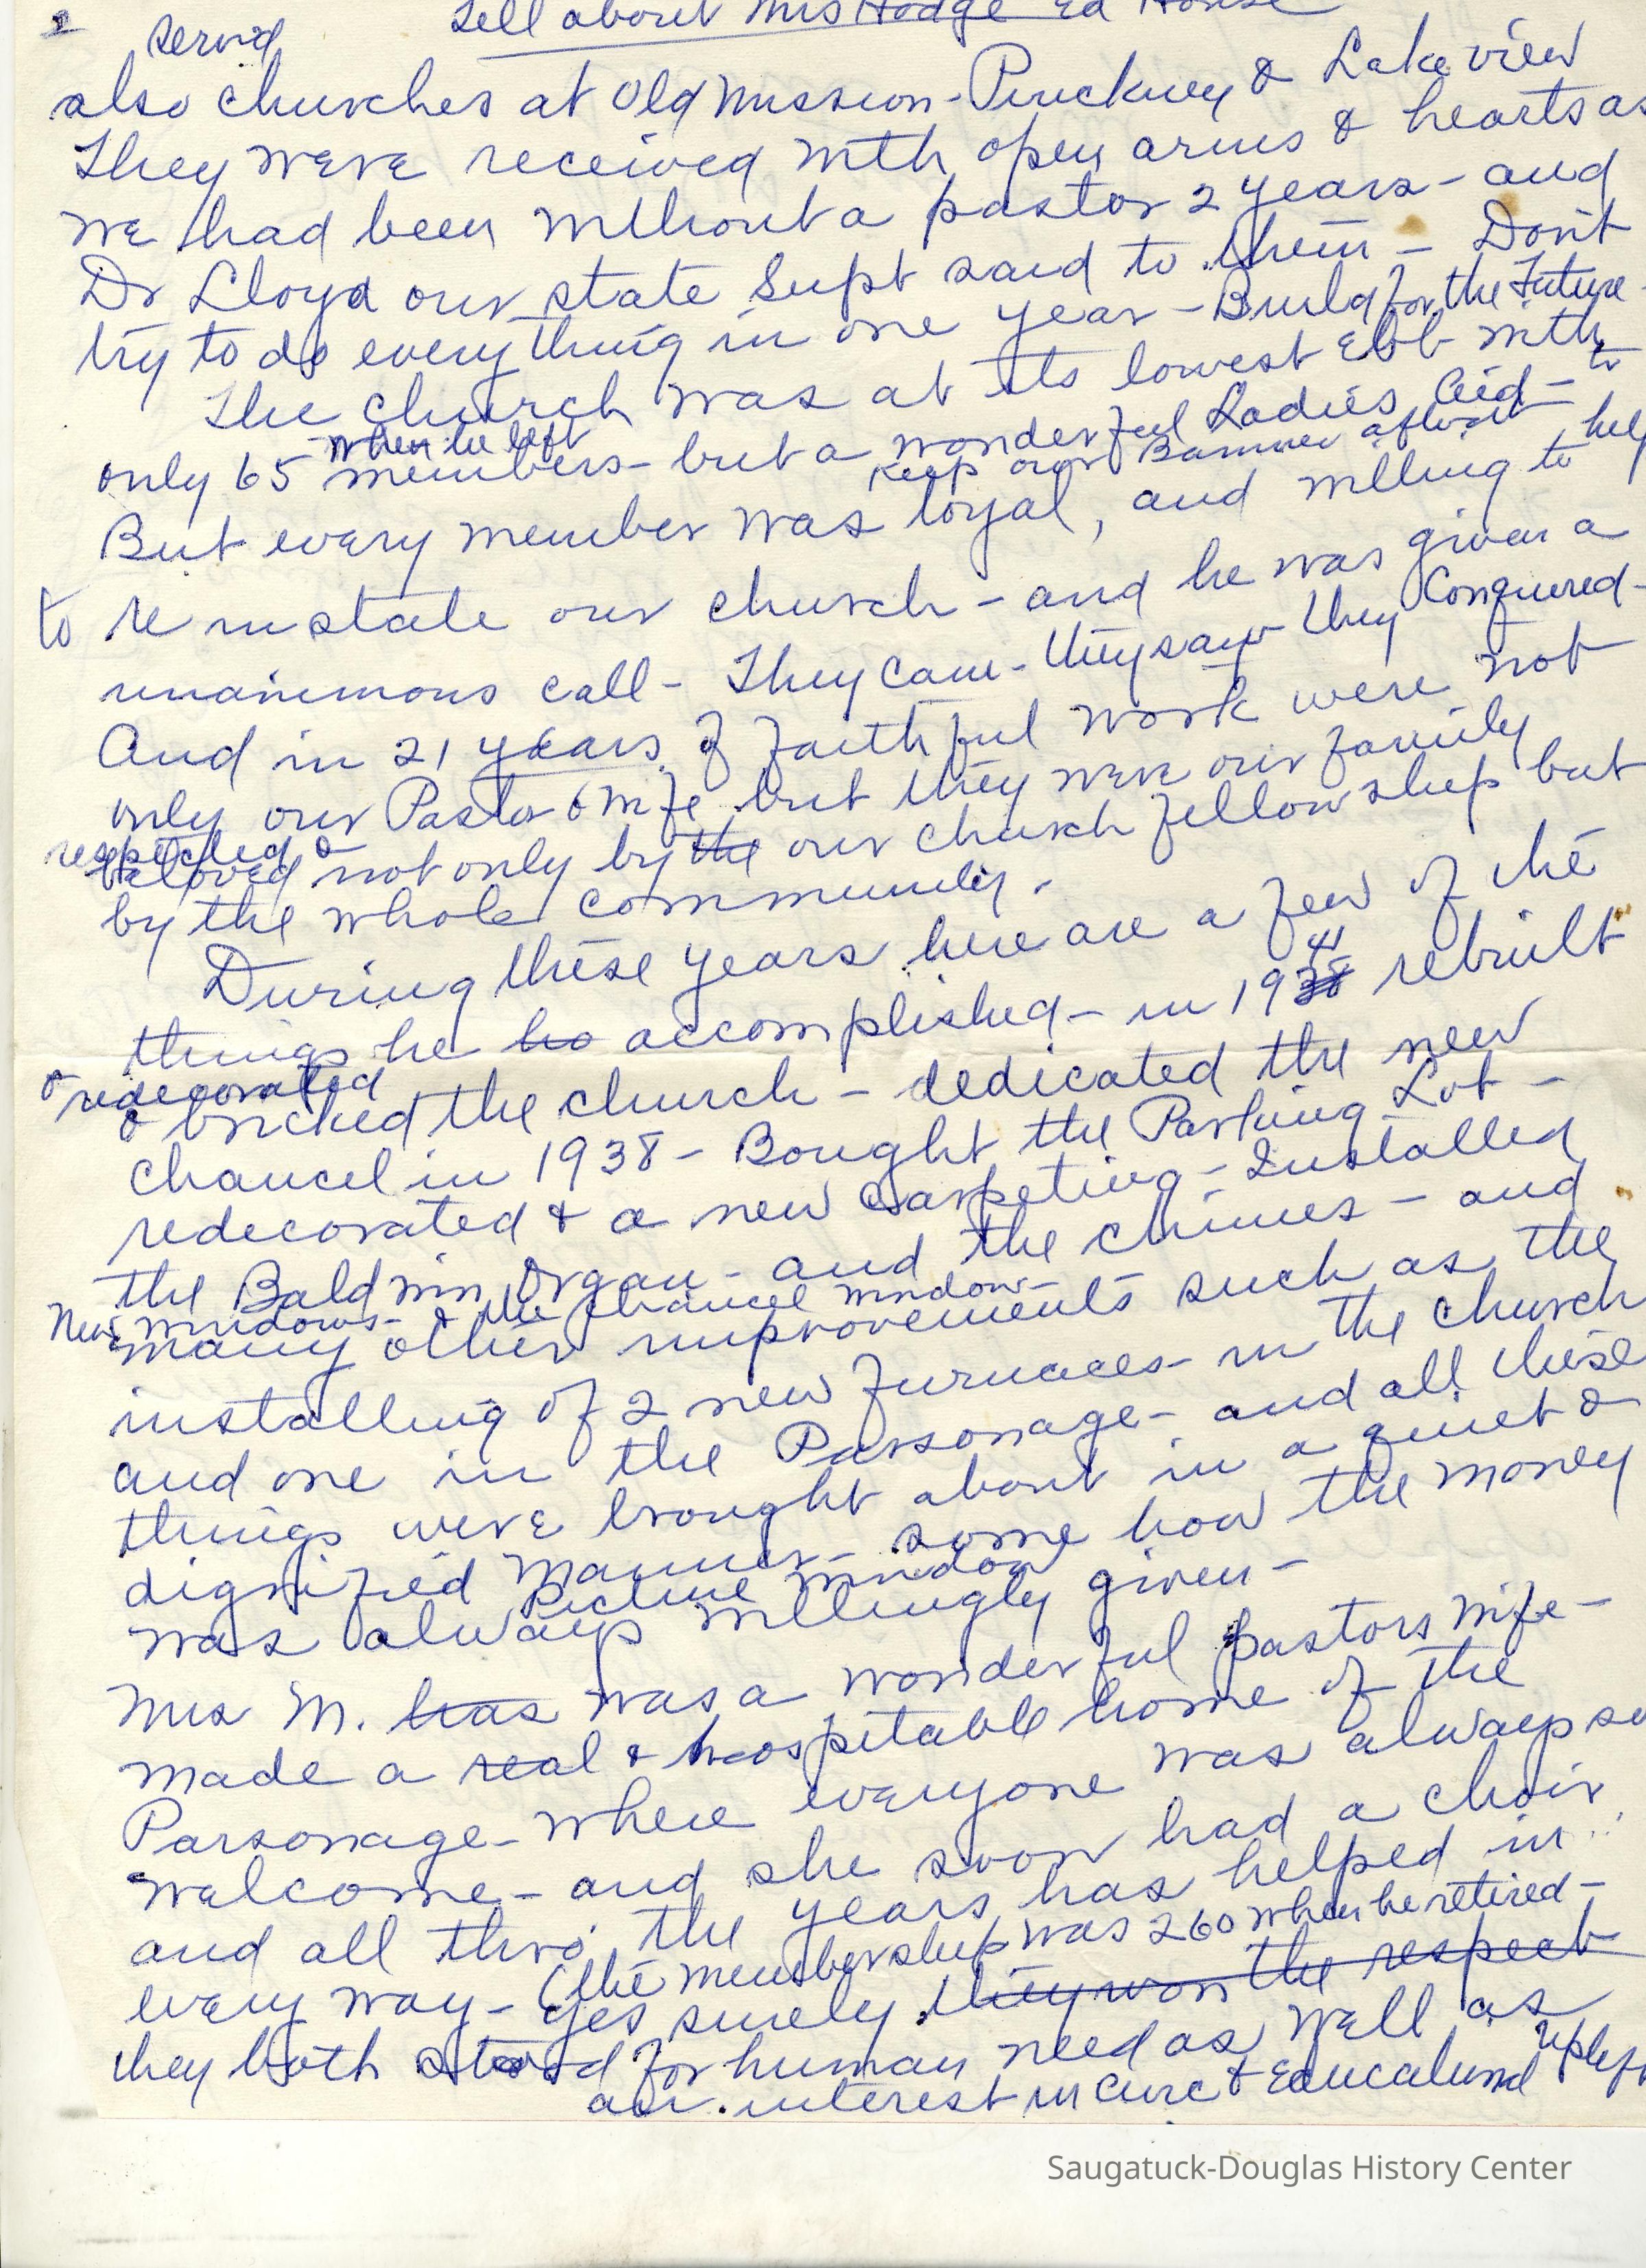 2
Tell about Mrs Hodge Ed House
served
also churches at Old Mission - Pinckney & Lakeview
They were received with open arms & hearts as
we had been without a pastor 2 years - and
Dr Lloyd our state Supt said to them - Don't
try to do everything in one year - Build for the Future -
The church was at its lowest Ebb with
when he left
only 65 members - but a wonderful Ladies Aid - to
keep our Banner afloat
But every member was loyal, and willing to help
to reinstate our church - and he was given a
unanimous call - They came - they saw they Conquered -
And in 21 years of faithful work were not
only our Pastor & wife but they were our family
respected &
beloved not only by the our church fellowship but
by the whole community.
During these years here are a few of the
41
things he ho accomplished - in 1938 rebuilt
& redecorated
& bricked the church - dedicated the new
chancel in 1938 - Bought the Parking Lot -
redecorated & a new Carpeting - Installed
the Baldwin Organ - and the chimes - and
New windows - & the chancel window -
many other improvements such as the
installing of 2 new furnaces - in the church
and one in the Parsonage - and all these
things were brought about in a quiet &
dignified manner - some how the money
Picture window
was always willingly given -
Mrs M. has was a wonderful pastors wife -
made a real & hospitable home of the
Parsonage - where everyone was always so
welcome - and she soon had a choir
and all thro' the years has helped in
(the membership was 260 when he retired -
every way - Yes surely they won the respect
they both stood for human need as well as
an interest in Civic & Educational uplift
Saugatuck-Douglas History Center